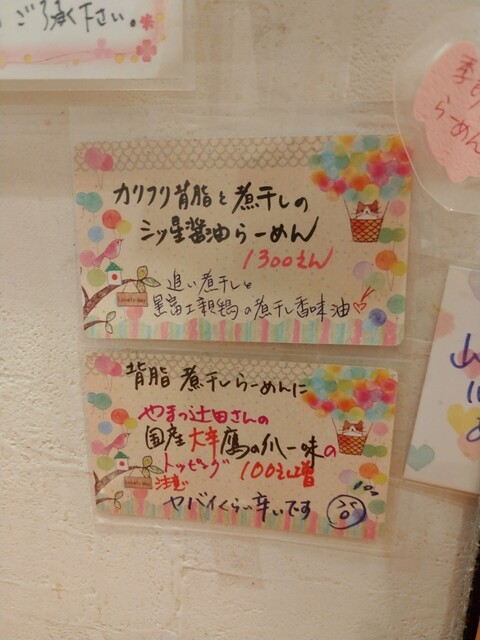 ご了承下さい。
季節
らーめん
カリフリ背脂と煮干しの
三ツ星醤油らーめん
1300えん
追い煮干しと
黒富士親鶏の煮干し香味油
Lovely day
背脂 煮干しらーめんに
やまつ辻田さんの
国産大辛鷹の爪一味の
トッピング 100えん増
注意
ヤバイくらい辛いです
Lovely day
山